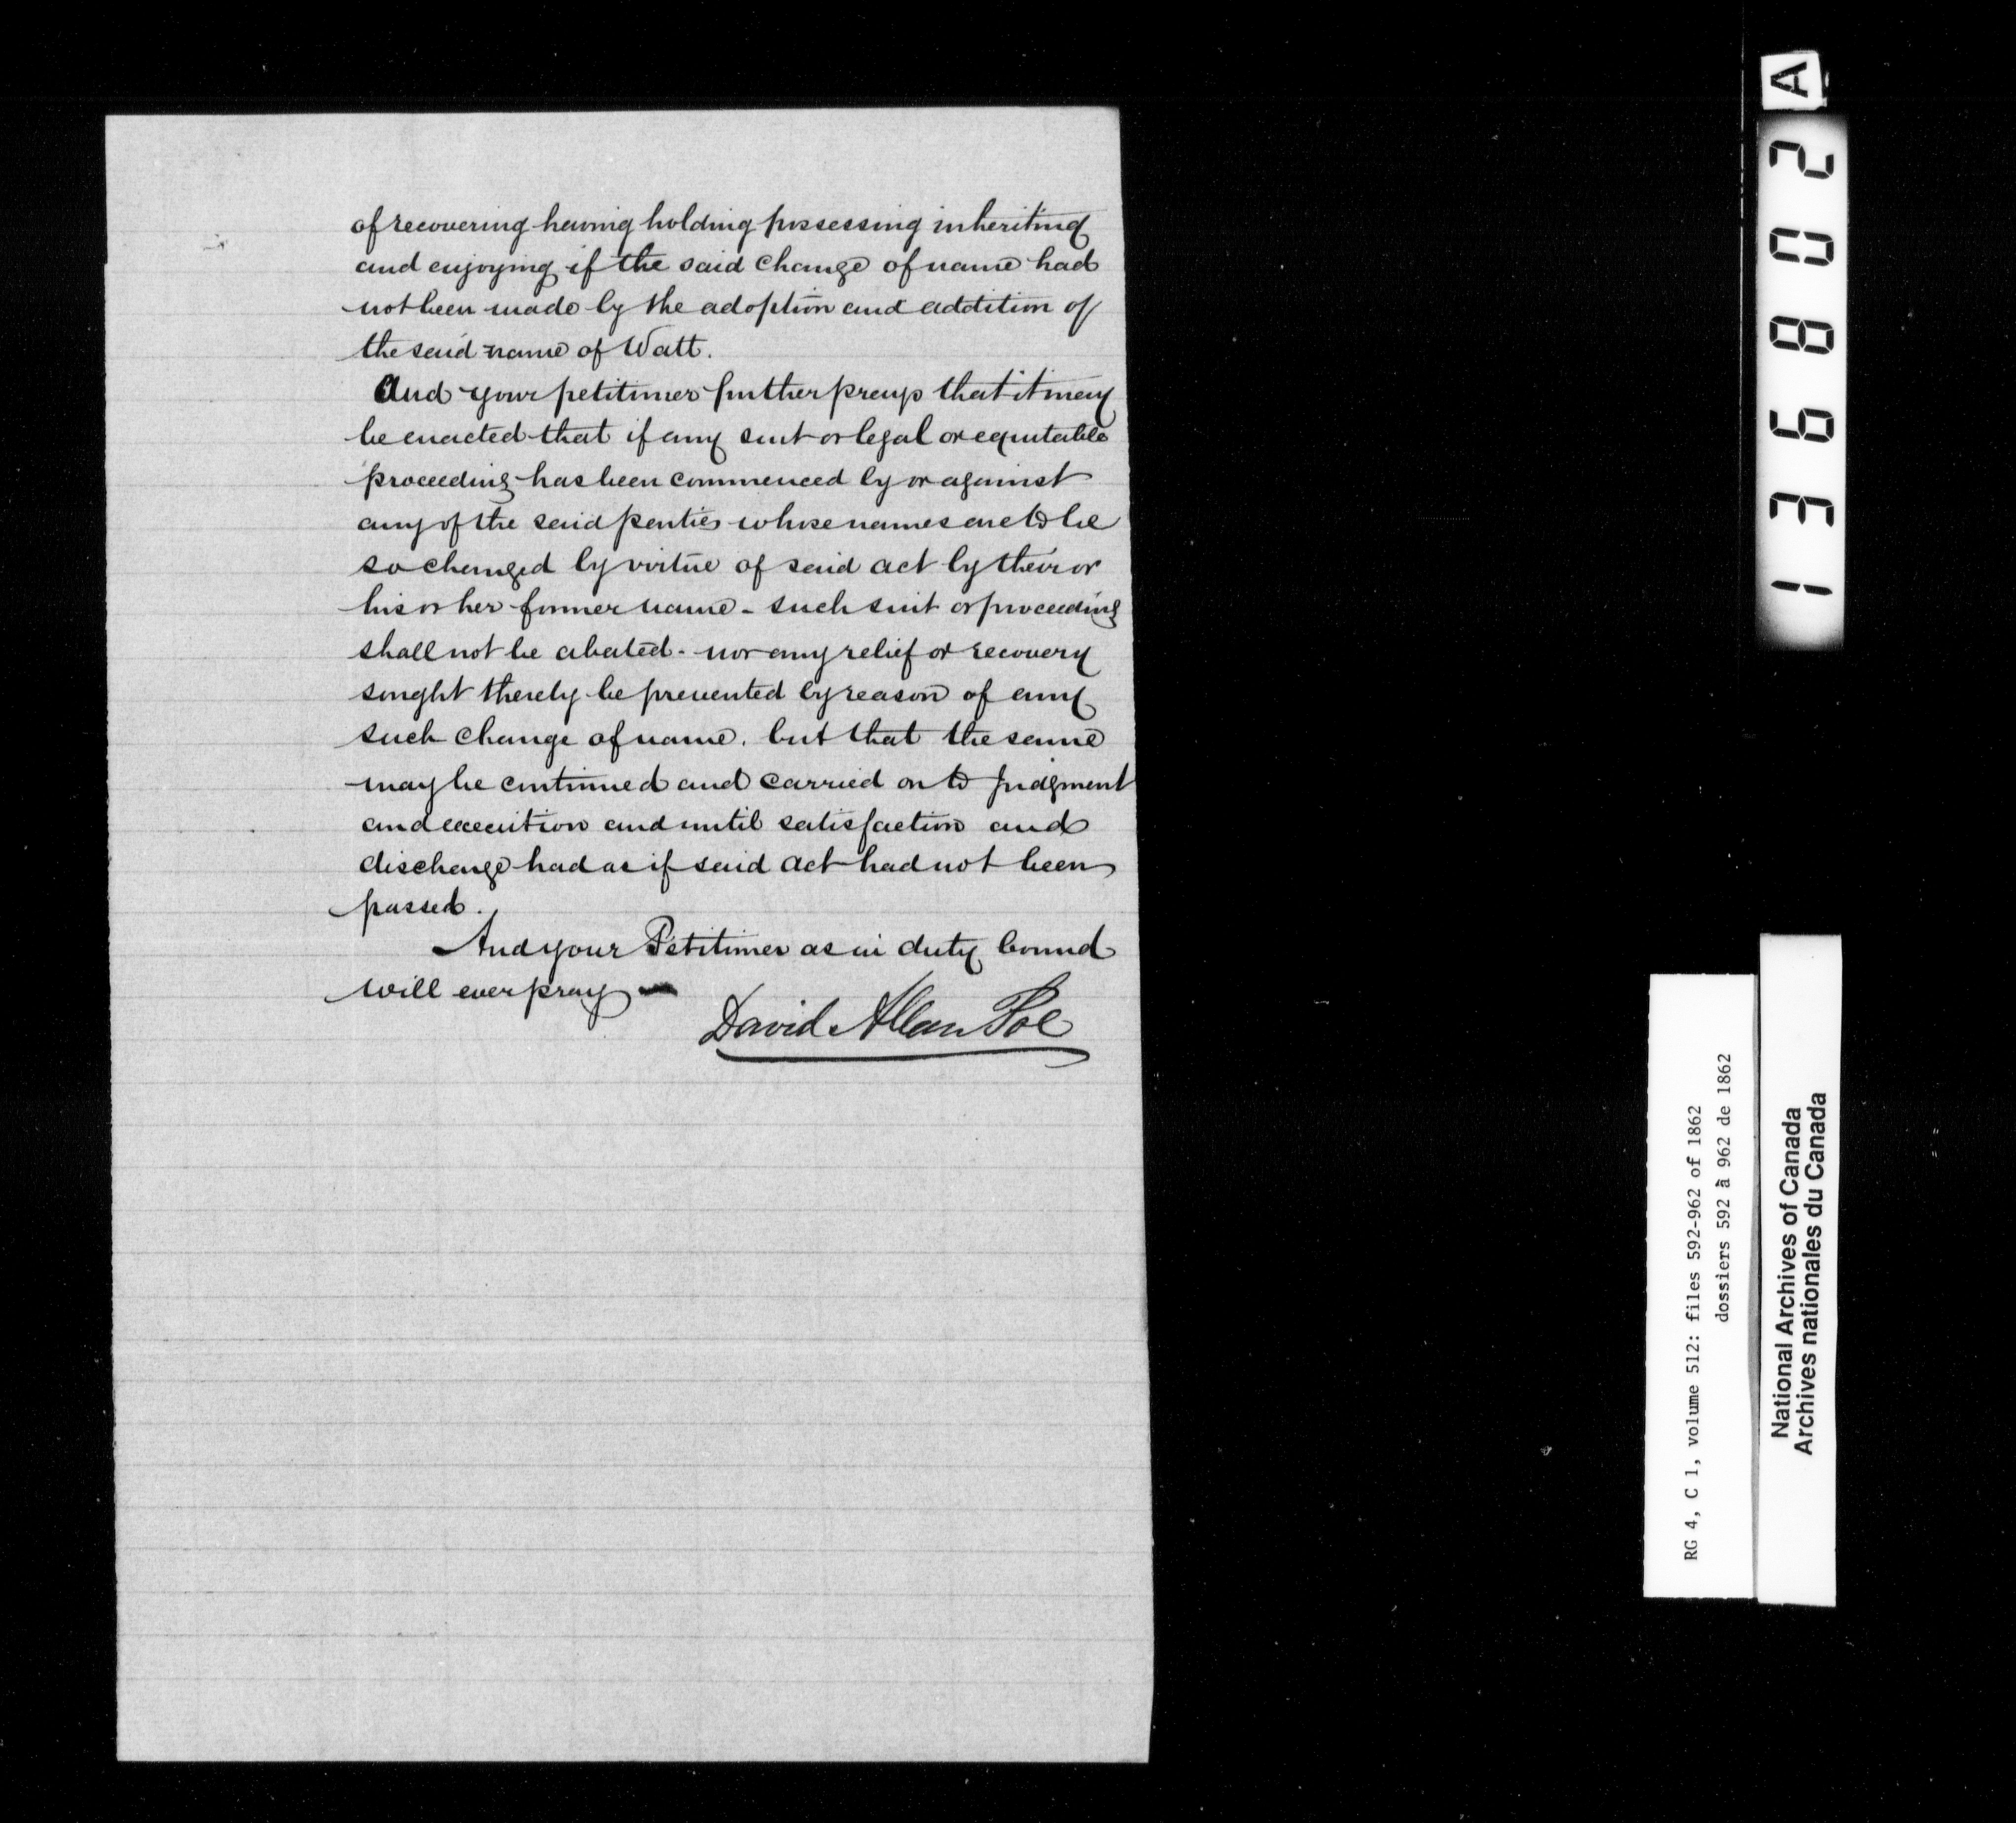 of recovering having holding possessing inheriting
and enjoying if the said change of name had
not been made by the adoption and addition of
the said name of Watt.
And your petitioner further prays that it may
be enacted that if any suit or legal or equitable
proceeding has been commenced by or against
any of the said parties whose names are to be
so changed by virtue of said act by their or
his or her former name - such suit or proceeding
shall not be abated - nor any relief or recovery
sought thereby be prevented by reason of any
such change of name, but that the same
may be continued and carried on to judgment
and execution and until satisfaction and
discharge had as if said act had not been
passed.
And your Petitioner as in duty bound
will ever pray —
David Allan Poe
13680 2 A
RG 4, C 1, volume 512: files 592-962 of 1862
dossiers 592 à 962 de 1862
National Archives of Canada
Archives nationales du Canada